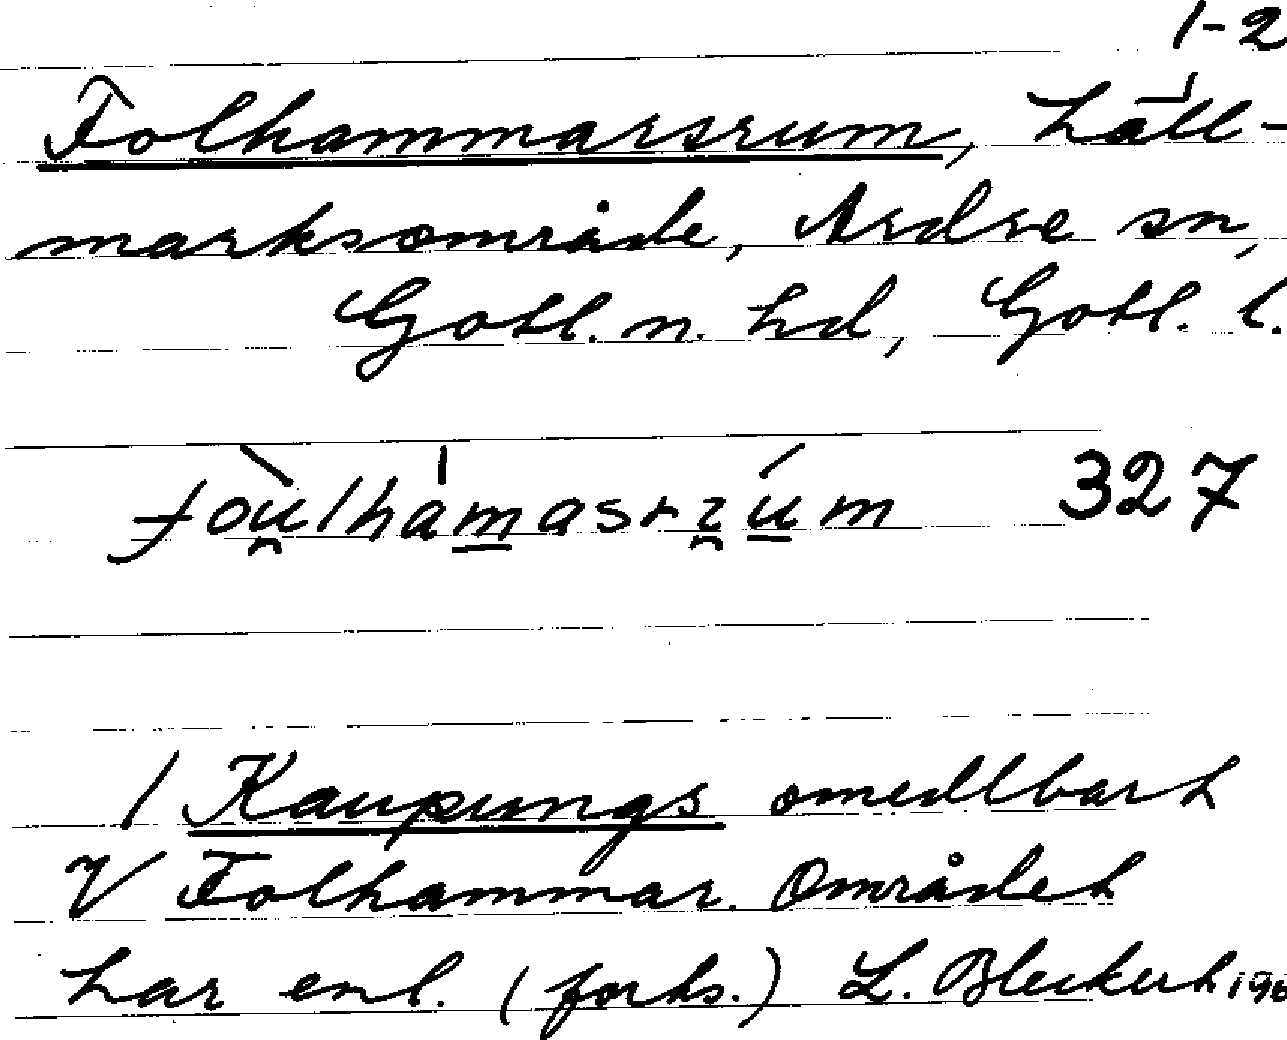 1-2
Folhammarsrum, häll-
marksområde, Ardre sn,
Gotl. n. hd, Gotl. l.
fòu̯lhàm̲asrʐu̲m 327
/ Kaupungs omedlbart
V Folhammar. Området
har enl. (forts.) L. Bleckert